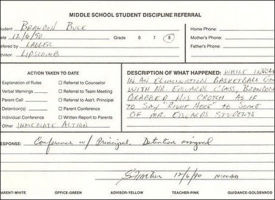 MIDDLE SCHOOL STUDENT DISCIPLINE REFERRAL
Student BRANDON BUCK
Date 12/6/90 Grade 6 7 8
Home Phone:
Mother's Phone:
Father's Phone:
LIPSCOMB
ACTION TAKEN TO DATE
Explanation of Rules
Referral to Counselor
Verbal Warnings
Referral to Team Meeting
Parent Call
Referral to Ass't. Principal
Detention(s)
Parent Conference
Individual Conference
Written Report to Parents
Other IMMEDIATE ACTION
DESCRIPTION OF WHAT HAPPENED: WHILE
IN AN ELIMINATION BASKETBALL GAME
WITH MR. EDWARDS CLASS, BRANDON
GRABBED HIS CROTCH AS IF
TO SAY "RIGHT HERE" TO SOME
OF MR. EDWARDS STUDENTS
RESPONSE:
Conference w/ Principal. Detention assigned
12/6/90
PARENT-WHITE OFFICE-GREEN ADVISOR-YELLOW TEACHER-PINK GUIDANCE-GOLDENROD